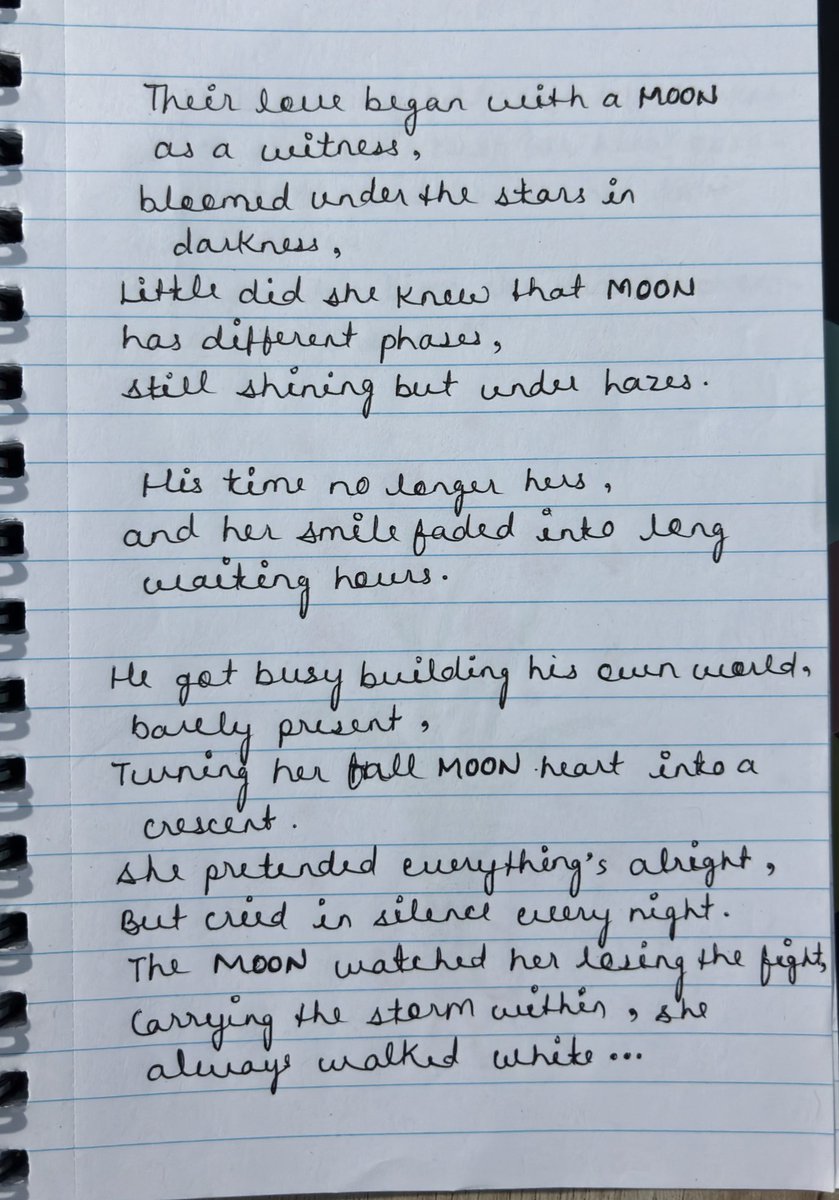 Their love began with a MOON
as a witness,
bloomed under the stars in
darkness,
Little did she knew that MOON
has different phases,
still shining but under hazes.
His time no longer hers,
and her smile faded into long
waiting hours.
He got busy building his own world,
barely present,
Turning her full MOON heart into a
crescent.
She pretended everything's alright,
But cried in silence every night.
The MOON watched her losing the fight,
Carrying the storm within, she
always walked white...